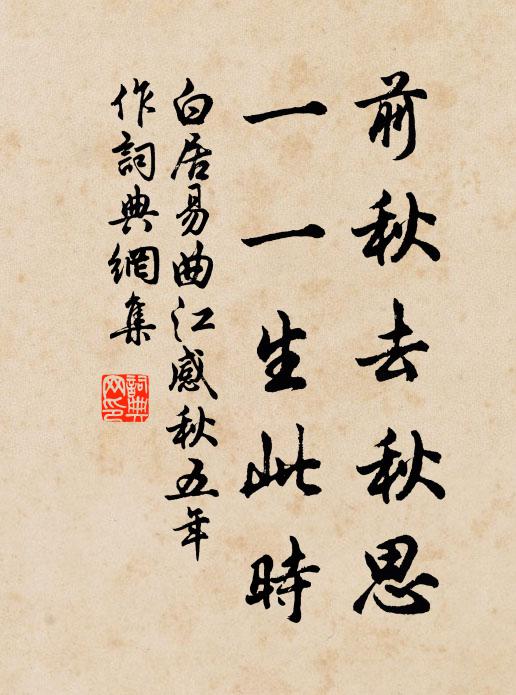 前秋去秋思
一一生此時
白居易曲江感秋五年
作詞典網集
詞典網印